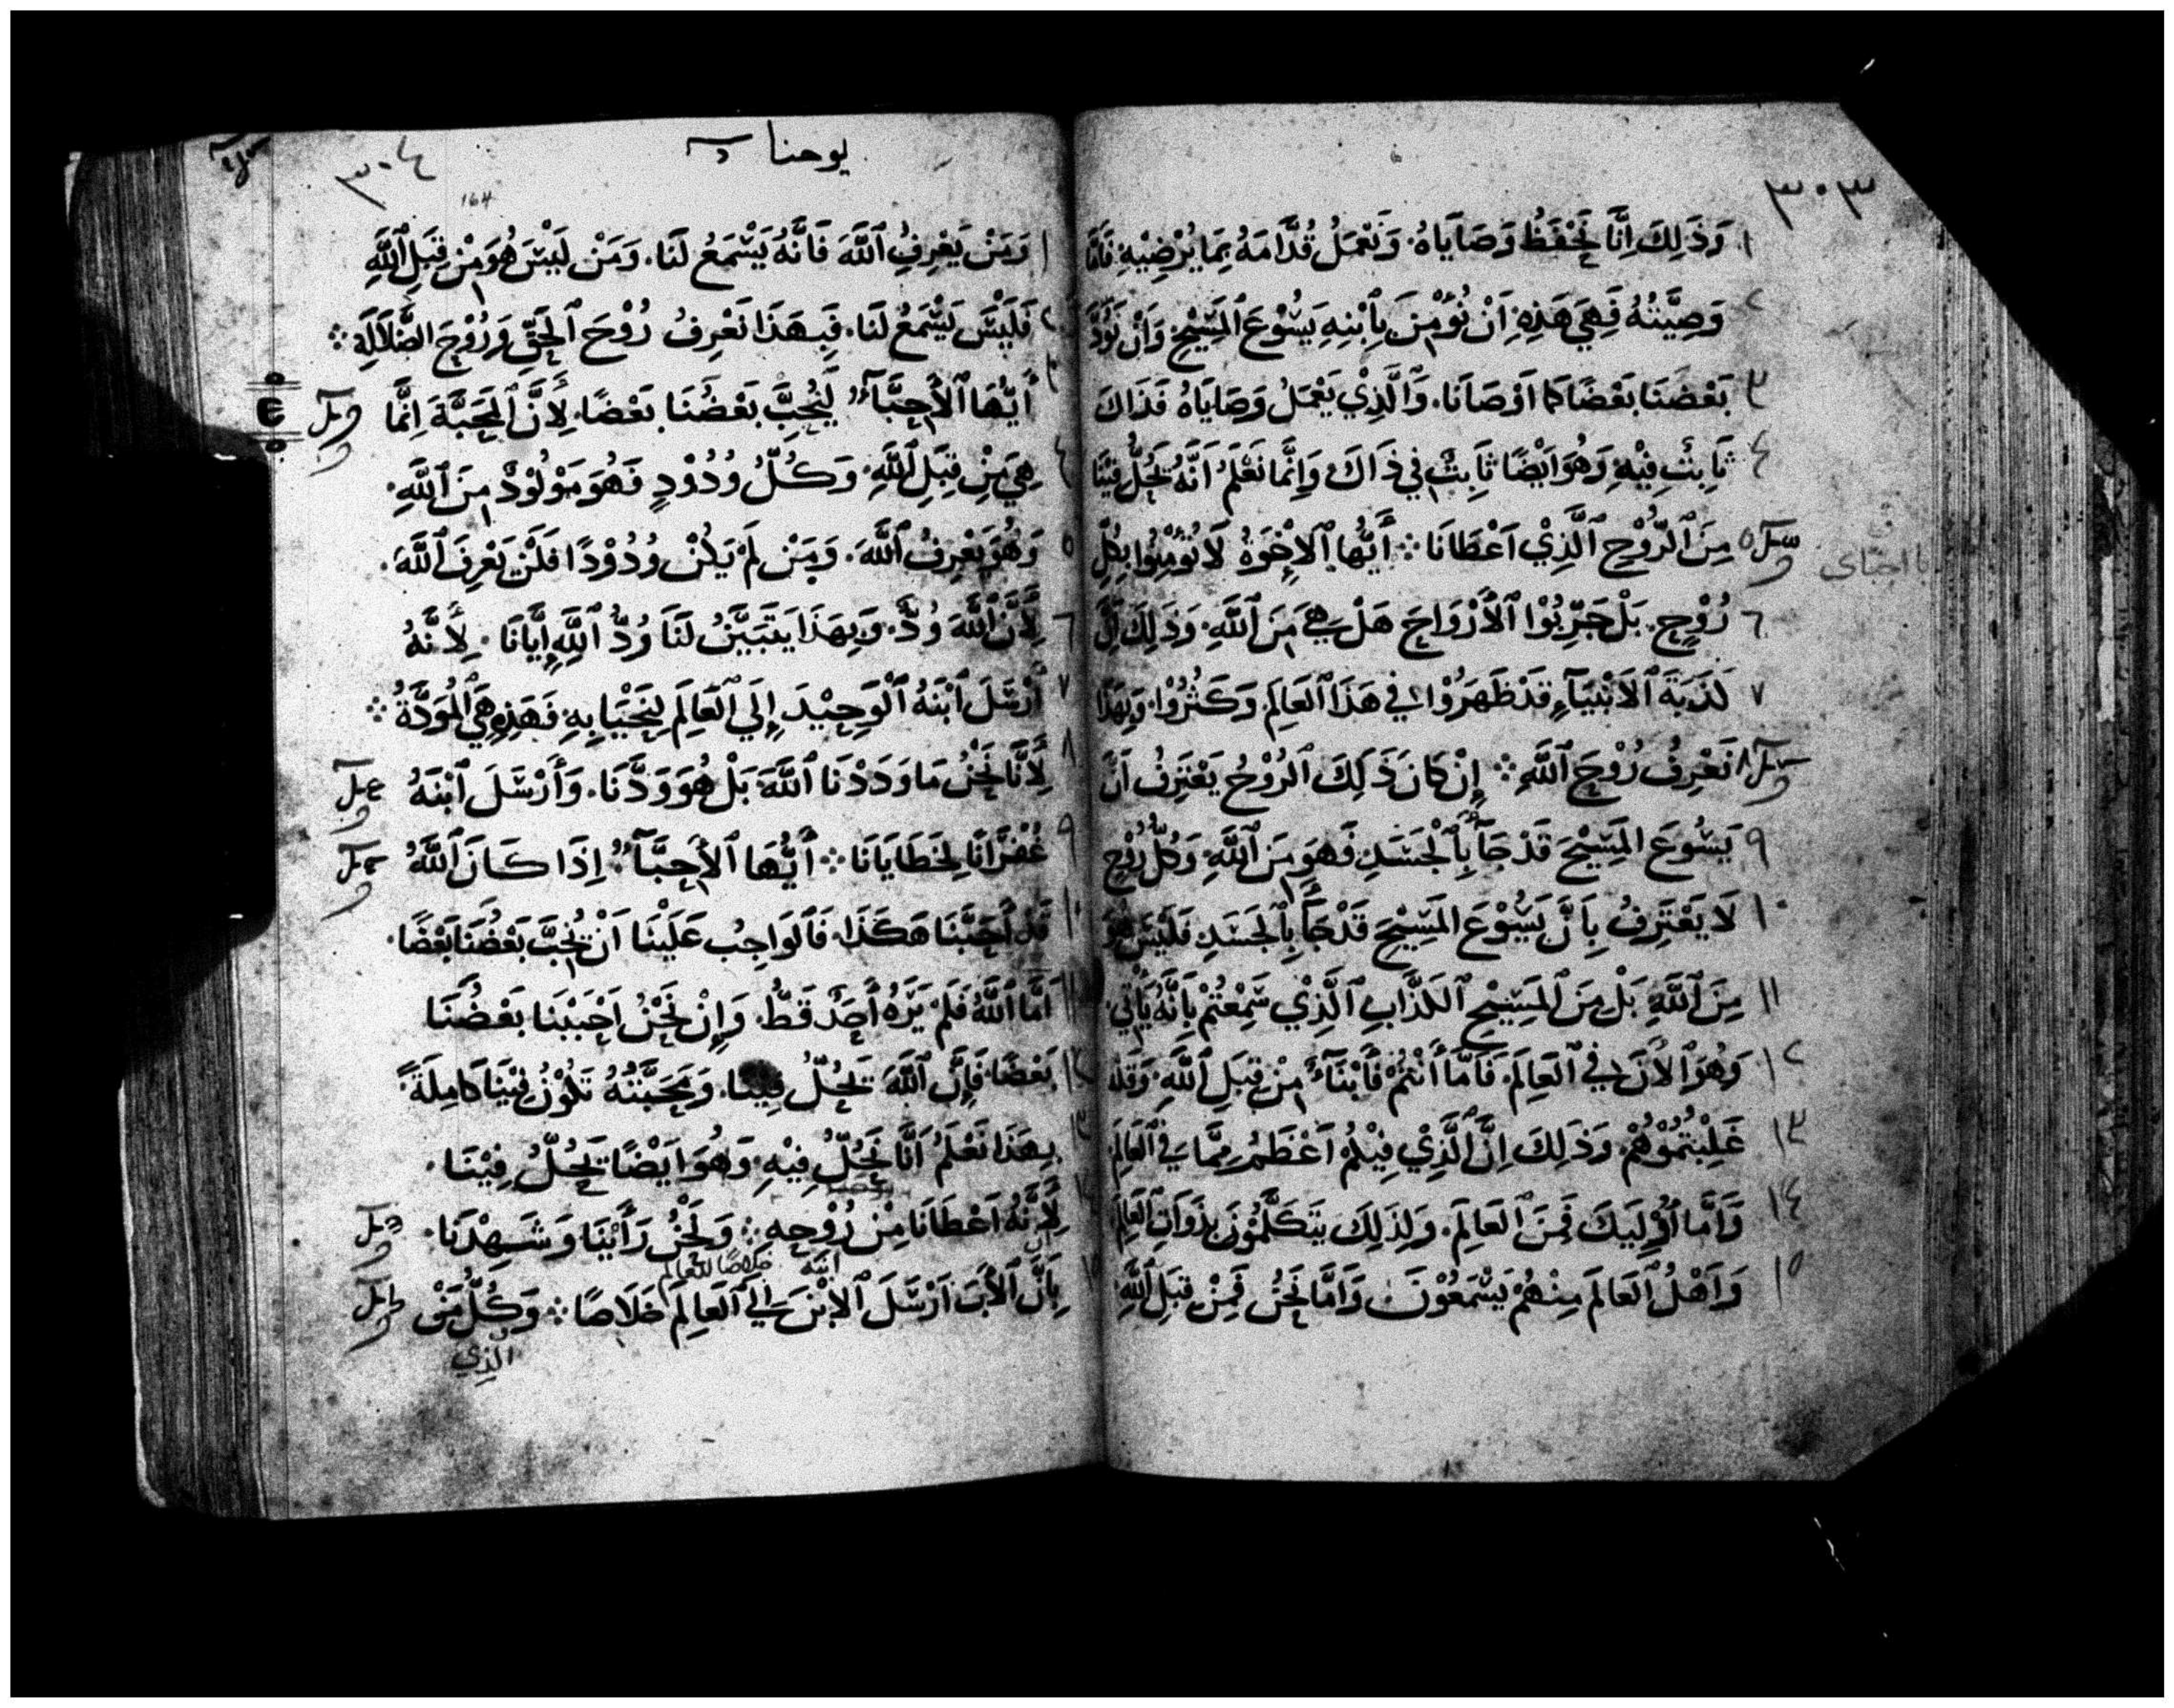 ٣٠٣
١ وَذَلِكَ اِنَّا نَحْفَظُ وَصَايَاهُ. وَنَعْمَلُ قُدَّامَهُ بِمَا يُرْضِيْهِ فَامَّا
٢ وَصِيَّتُهُ فَهِيَ هَذِهِ اَنْ نُؤْمِنَ بِاِبْنِهِ يَسُوْعَ اَلمَسِيْحِ وَاَنْ نَوُدَّ
٣ بَعْضُنَا بَعْضًا كَمَا اَوْصَانَا. وَالَّذِيْ يَعْمَلُ وَصَايَاهُ فَذَاكَ
٤ ثَابِتٌ فِيْهِ وَهُوَ اَيْضًا ثَابِتٌ فِي ذَاكَ وَاِنَّمَا نَعْلَمُ اَنَّهُ يَحُلُّ فِيْنَا
٥ مِنَ اَلرُّوْحِ اَلَّذِيْ اَعْطَانَا ۞ أَيُّهَا اَلاِخْوَةُ لَا تُؤْمِنُوا بِكُلِّ
٦ رُوْحٍ. بَلْ جَرِّبُوْا اَلأَرْوَاحَ هَلْ هِيَ مِنَ اَللَّهِ. وَذَلِكَ اَنَّ
٧ كَذَبَةَ اَلاَنْبِيَآءِ قَدْ ظَهَرُوْا فِي هَذَا اَلعَالَمِ. وَكَثُرُوْا. وَبِهَذَا
٨ نَعْرِفُ رُوْحَ اَللَّهِ ۞ إِنْ كَانَ ذَلِكَ اَلرُوْحُ يَعْتَرِفُ اَنَّ
٩ يَسُوعَ المَسِيْحَ قَدْ جَآءَ بِاَلْجَسَدِ فَهوَ مِنَ اَللَّهِ وَكُلُّ رُوْحٍ
١٠ لَا يَعْتَرِفُ بِاَنَّ يَسُوْعَ المَسِيْحَ قَدْ جَآءَ بِاَلجَسَدِ فَلَيْسَ هُوَ
١١ مِنَ اَللَّهِ بَلْ مِنَ اَلمَسِيْحِ اَلكَذَّابِ اَلَّذِيْ سَمِعْتُمْ بِاَنَّهُ يَأْتِي.
١٢ وَهُوَ اَلاَنَ فِي اَلعَالَمِ. فَاَمَّا أَنْتُمْ فَأَبْنَآءٌ مِنْ قِبَلِ اَللَّهِ. وَقَد
١٣ غَلِبْتُمُوْهُمْ. وَذَلِكَ اِنَّ اَلَّذِيْ فِيْكُمْ اَعْظَمُ مِمَّا فِي اَلعَالَمِ
١٤ وَاَمَّا اُوْلَيِكَ فَمِنَ اَلعَالَمِ. وَلِذَلِكَ يَتَكَلَّمُوْنَ بِذَوَاتِ اَلعَالَمِ
١٥ وَاَهْلُ اَلعَالَمِ مِنْهُمْ يَسْمَعُوْنَ وَاَمَّا نَحْنُ فَمِنْ قِبَلِ اَللَّهِ
يوحنا
٣٠٤
164
١ وَمَنْ يَعْرِفُ اَللَّهَ فَاَنَّهُ يَسْمَعُ لَنَا. وَمَنْ لَيْسَ هُوَ مِنْ قِبَلِ اَللَّهِ
٢ فَلَيْسَ يَسْمَعُ لَنَا. فَبِهَذَا نَعْرِفُ رُوْحَ اَلحَقِّ وَرُوْحَ الضَّلاَلَةِ ۞
٣ أَيُّهَا اَلأَحِبَّآءُ لِيُحِبَّ بَعْضُنَا بَعْضًا. لِأَنَّ اَلمَحَبَّةَ اِنَّمَا
٤ هِيَ مِنْ قِبَلِ اَللَّهِ وَكُلُّ وُدُوْدٍ فَهُوَ مَوْلُوْدٌ مِنَ اَللَّهِ.
٥ وَهُوَ يَعْرِفُ اَللَّهَ. وَمَنْ لَمْ يَكُنْ وُدُوْدًا فَلَنْ يَعْرِفَ اَللَّهَ.
٦ لِأَنَّ اَللَّهَ وُدٌّ. وَبِهَذَا يَتَبَيَّنُ لَنَا وُدُّ اَللَّهِ إِيَّانَا. لِأَنَّهُ
٧ أَرْسَلَ اَبْنَهُ اَلْوَحِيْدَ إِلَي اَلعَالَمِ لِنَحْيَا بِهِ فَهَذِهِ هِيَ اَلْمَوَدَّةُ ۞
٨ لِأَنَّا نَحْنُ مَا وَدَدْنَا اَللَّهَ بَلْ هُوَ وَدَّنَا. وَأَرْسَلَ اَبْنَهُ
٩ غُفْرَانًا لِخَطَايَانَا ۞ أَيُّهَا اَلأَحِبَّآءُ اِذَا كَانَ اَللَّهُ
١٠ قَدْ أَحَبَّنَا هَكَذَا. فَالوَاجِبُ عَلَيْنَا اَنْ نُحِبَّ بَعْضُنَا بَعْضًا.
١١ اَمَّا اَللَّهُ فَلَمْ يَرَهُ أَحَدٌ قَطُّ. وَإِنْ نَحْنُ اَحْبَبْنَا بَعْضُنَا
١٢ بَعْضًا. فَإِنَّ اَللَّهَ يَحُلُّ فِينَا. وَمَحَبَّتُهُ تَكُوْنُ فِيْنَا كَامِلَةً
١٣ بِهَذَا نَعْلَمُ اَنَّا نَحُلُّ فِيْهِ. وَهُوَ اَيْضًا يَحُلُّ فِيْنَا.
لِأَنَّهُ اَعْطَانَا مِنْ رُوْحِهِ ۞ وَنَحْنُ رَأَيْنَا وَشَهِدْنَا.
ابنه خلاصًا للعالم
بِاَنَّ اَلأَبَ اَرْسَلَ اَلاِبْنَ اِلَي اَلعَالَمِ خَلَاصًا ۞ وَكُلُّ مَنْ
الذي